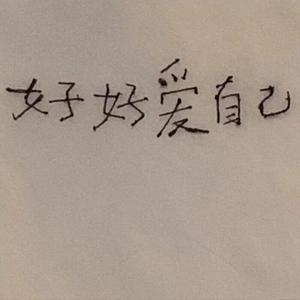 好好爱自己